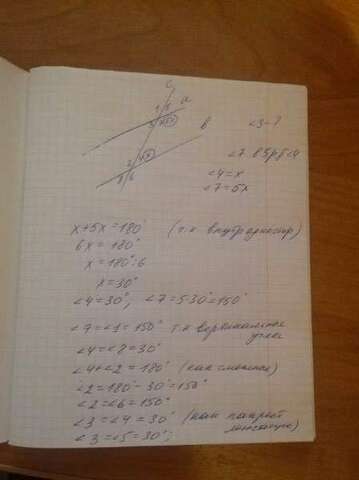 c
1 5 a
3 7 5x
b
2 4 x
8 6
∠3-?
∠7 в 5 р б ∠4
∠4=x
∠7=5x
x+5x=180° (т.к внутр односторон)
6x=180°
x=180°:6
x=30°
∠4=30°, ∠7=5·30°=150°
∠7=∠1=150° т.к вертикальные
углы
∠4=∠8=30°
∠4+∠2=180° (как смежные)
∠2=180°-30°=150°
∠2=∠6=150°
∠3=∠4=30° (как накрест
лежащие)
∠3=∠5=30°;